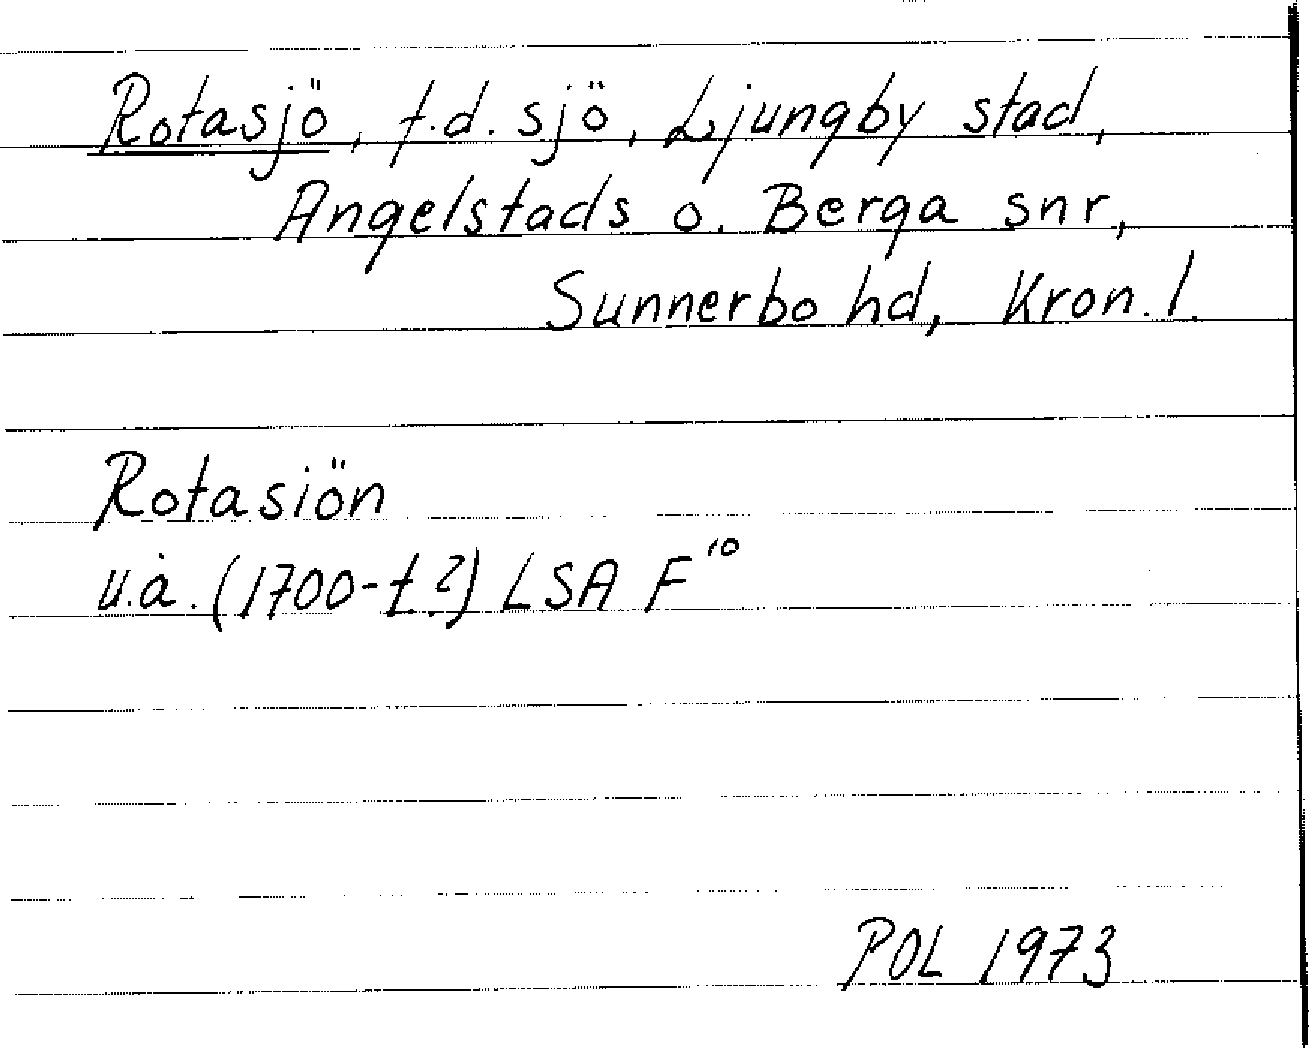 Rotasjö, f.d. sjö, Ljungby stad,
Angelstads o. Berga snr,
Sunnerbo hd, Kron. l.
Rotasiön
u.å. (1700-t.?) LSA F¹⁰
POL 1973